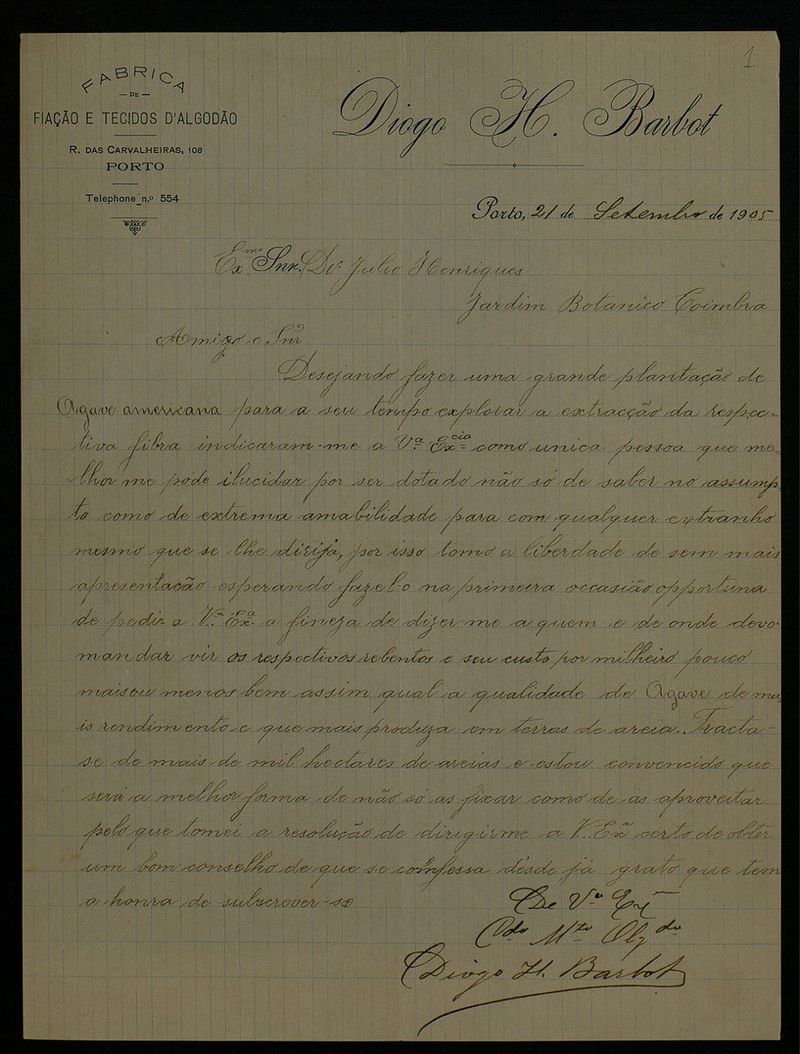 1
FABRICA
DE
FIAÇÃO E TECIDOS D'ALGODÃO
R. DAS CARVALHEIRAS, 108
PORTO
Telephone n.º 554
Diogo H. Barbot
Porto, 21 de Setembro de 1905
Ex.mo Snr. Dr. Julio Henriques
Jardim Botanico Coimbra
Amigo e Snr
Desejando fazer uma grande plantação de
Agave americana para a seu tempo explorar a extracção da respec=
tiva fibra indicaram-me a V.ª Ex.cia como unica pessoa que me-
lhor me póde ilucidar por ser dotado não só de saber no assump
to como de extrema amabilidade para com qualquer extranho
mesmo que se lhe dirija, por isso tomo a liberdade de sem mais
apresentacão esperando fazelo na primeira occasião opportuna
de pedir a V.ª Ex.ª a fineza de dizer-me a quem e de onde devo
mandar vir os respectivos rebentos e seu custo por milheiro pouco
mais ou menos bem assim qual a qualidade de Agave de ma
is rendimento e que mais produza em terras de areia. Tracta-
se de mais de mil hectares de areias e estou convencido que
será a melhor forma de não só as fixar como de as aproveitar
pelo que tomei a resolução de dirigirme a V. Exª certo de obter
um bom conselho de que se confessa désde já grato que tem
a honra de subscrever-se
De Vª Exª
Mto Obgdo
Diogo H. Barbot